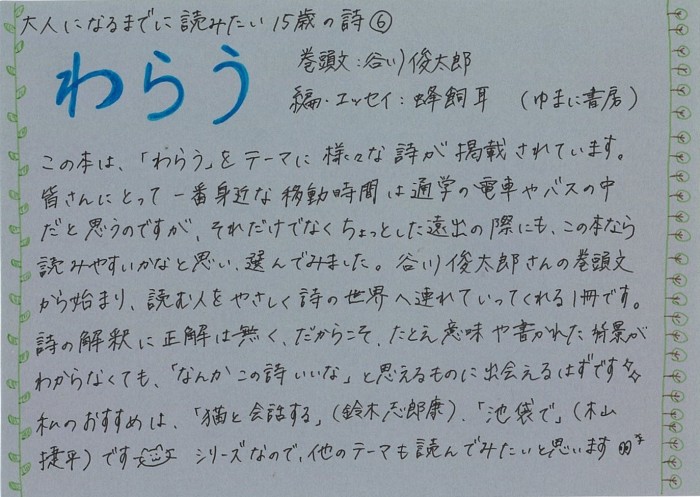 大人になるまでに読みたい15歳の詩⑥
わらう
巻頭文:谷川俊太郎
編・エッセイ:蜂飼耳 (ゆまに書房)
この本は、「わらう」をテーマに様々な詩が掲載されています。
皆さんにとって一番身近な移動時間は通学の電車やバスの中
だと思うのですが、それだけでなくちょっとした遠出の際にも、この本なら
読みやすいかなと思い、選んでみました。谷川俊太郎さんの巻頭文
から始まり、読む人をやさしく詩の世界へ連れていってくれる1冊です。
詩の解釈に正解は無く、だからこそ、たとえ意味や書かれた背景が
わからなくても、「なんかこの詩いいな」と思えるものに出会えるはずです
私のおすすめは、「猫と会話する」(鈴木志郎康)、「池袋で」(木山
捷平)です シリーズなので、他のテーマも読んでみたいと思います